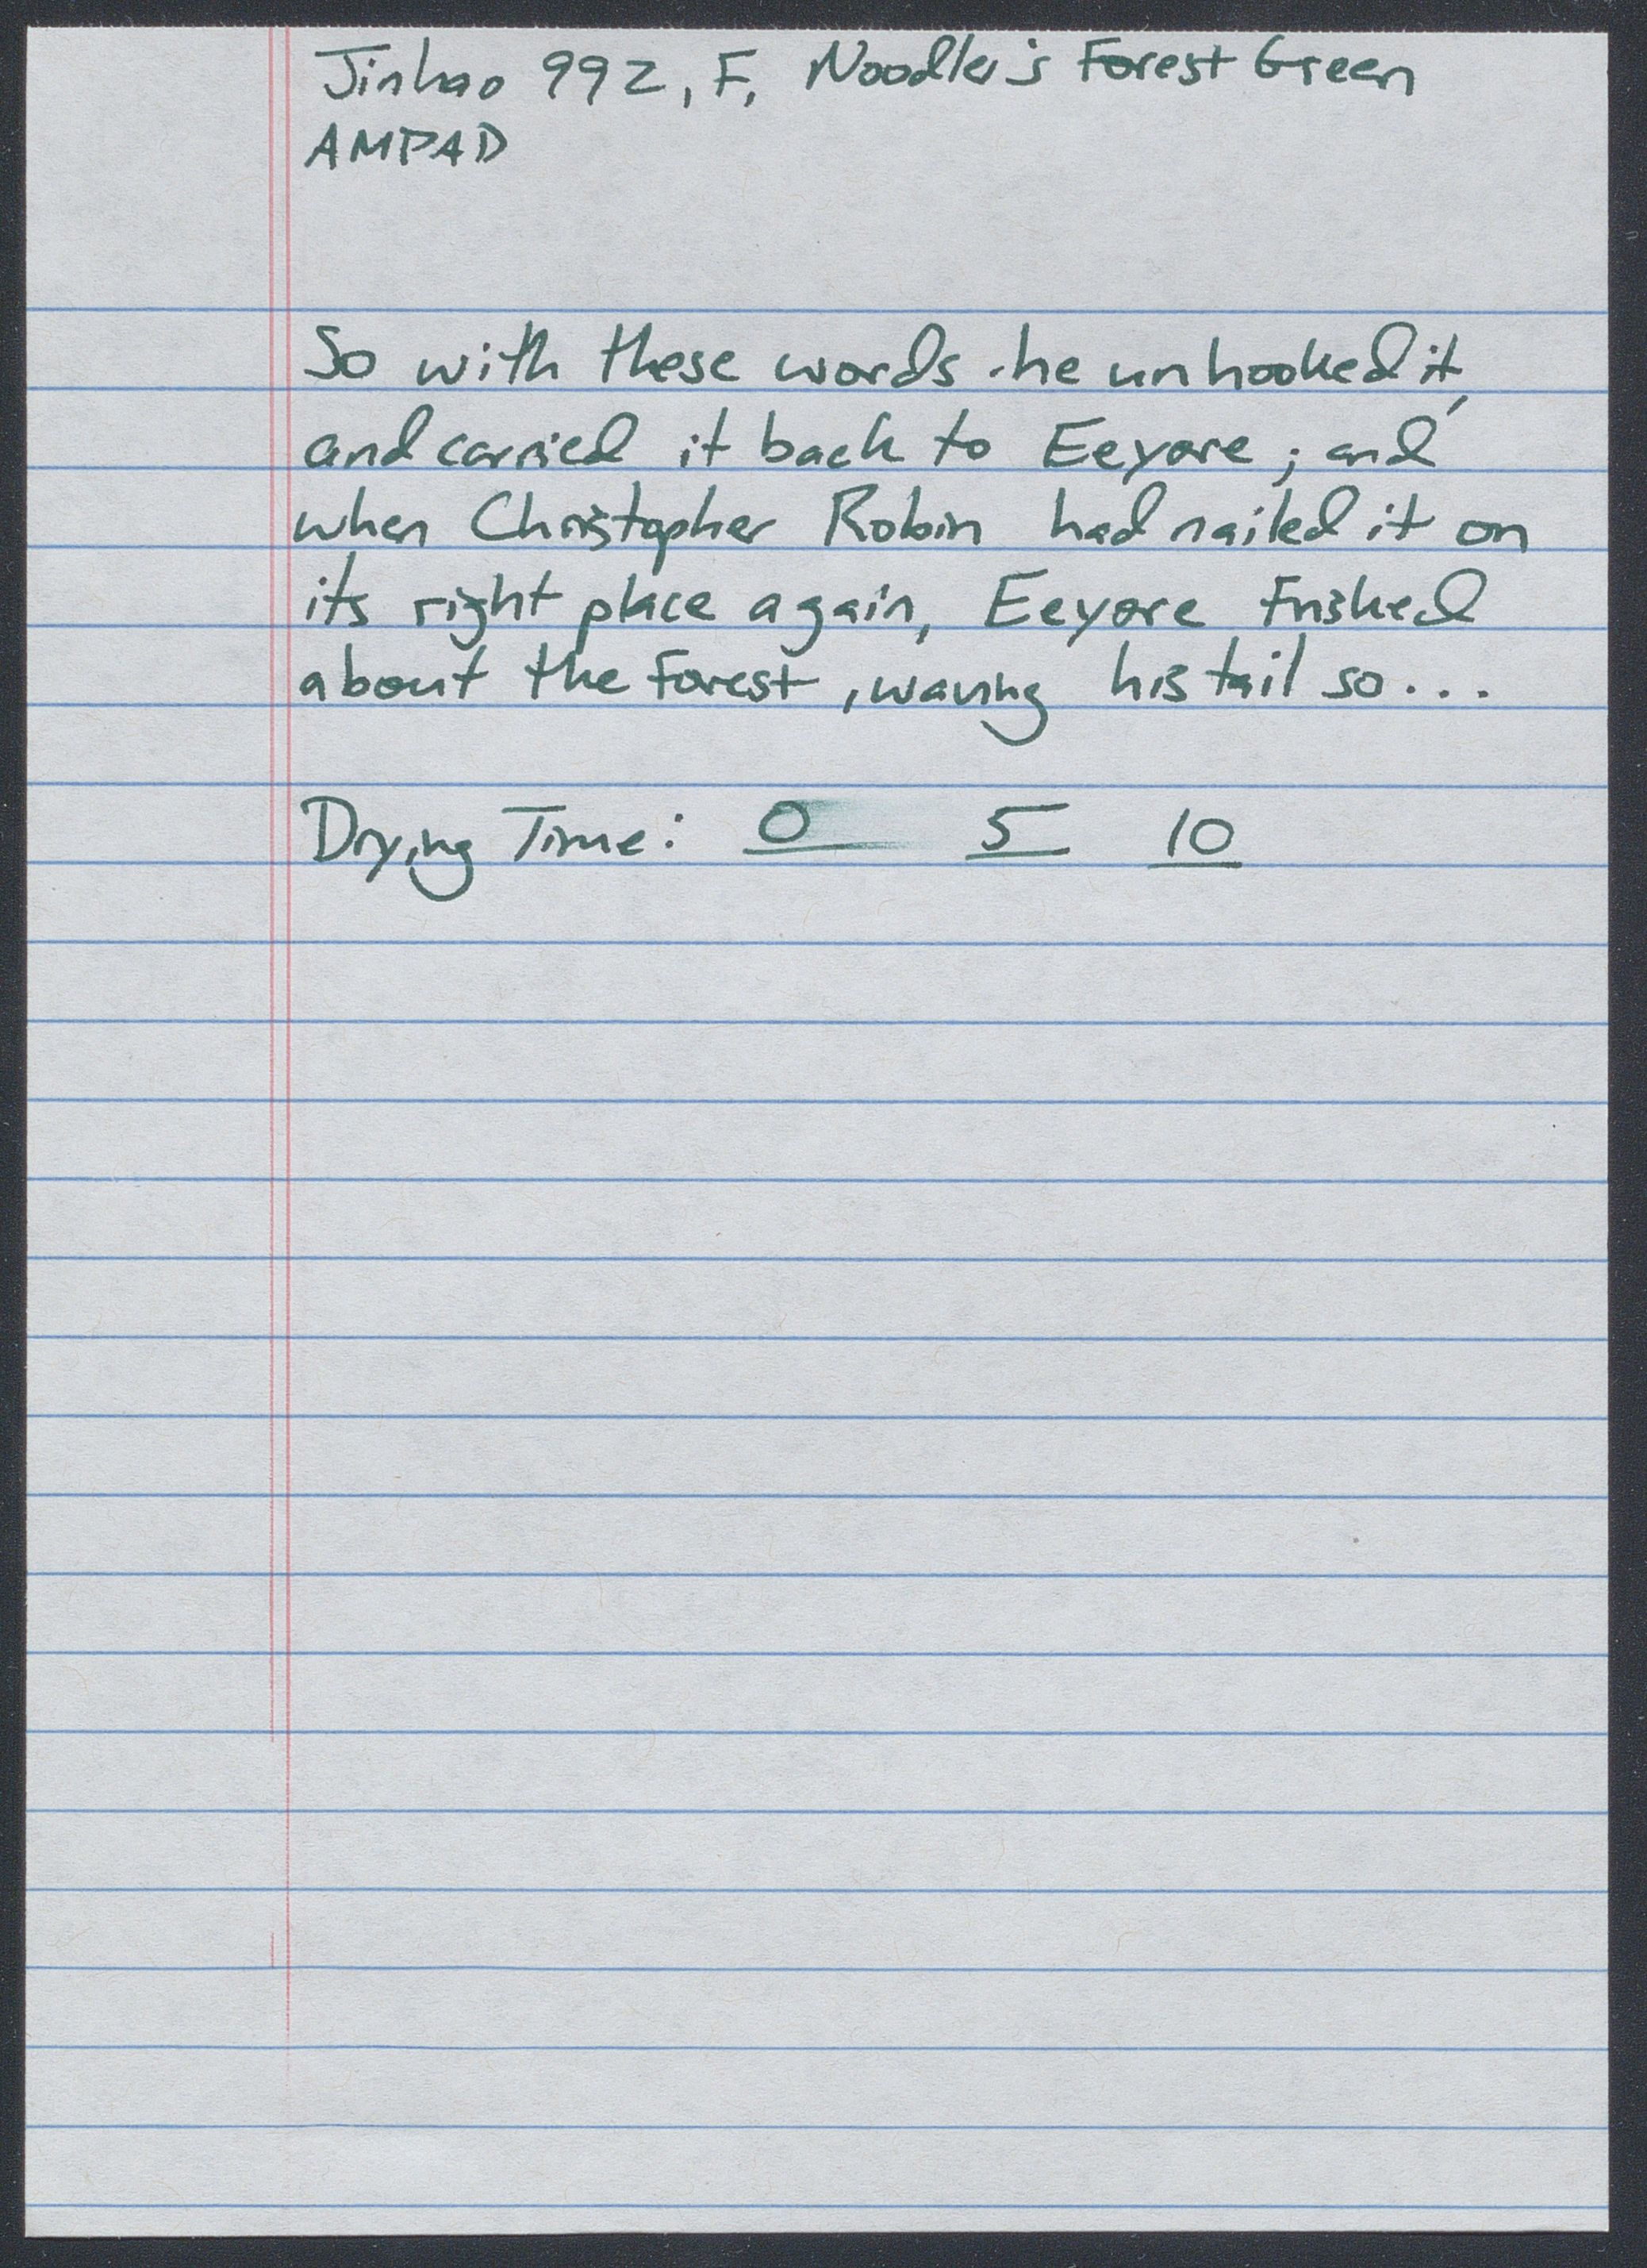 Jinhao 992, F, Noodler's Forest Green
AMPAD
So with these words he unhooked it,
and carried it back to Eeyore; and
when Christopher Robin had nailed it on
its right place again, Eeyore frisked
about the forest, waving his tail so...
Drying Time: 0 5 10